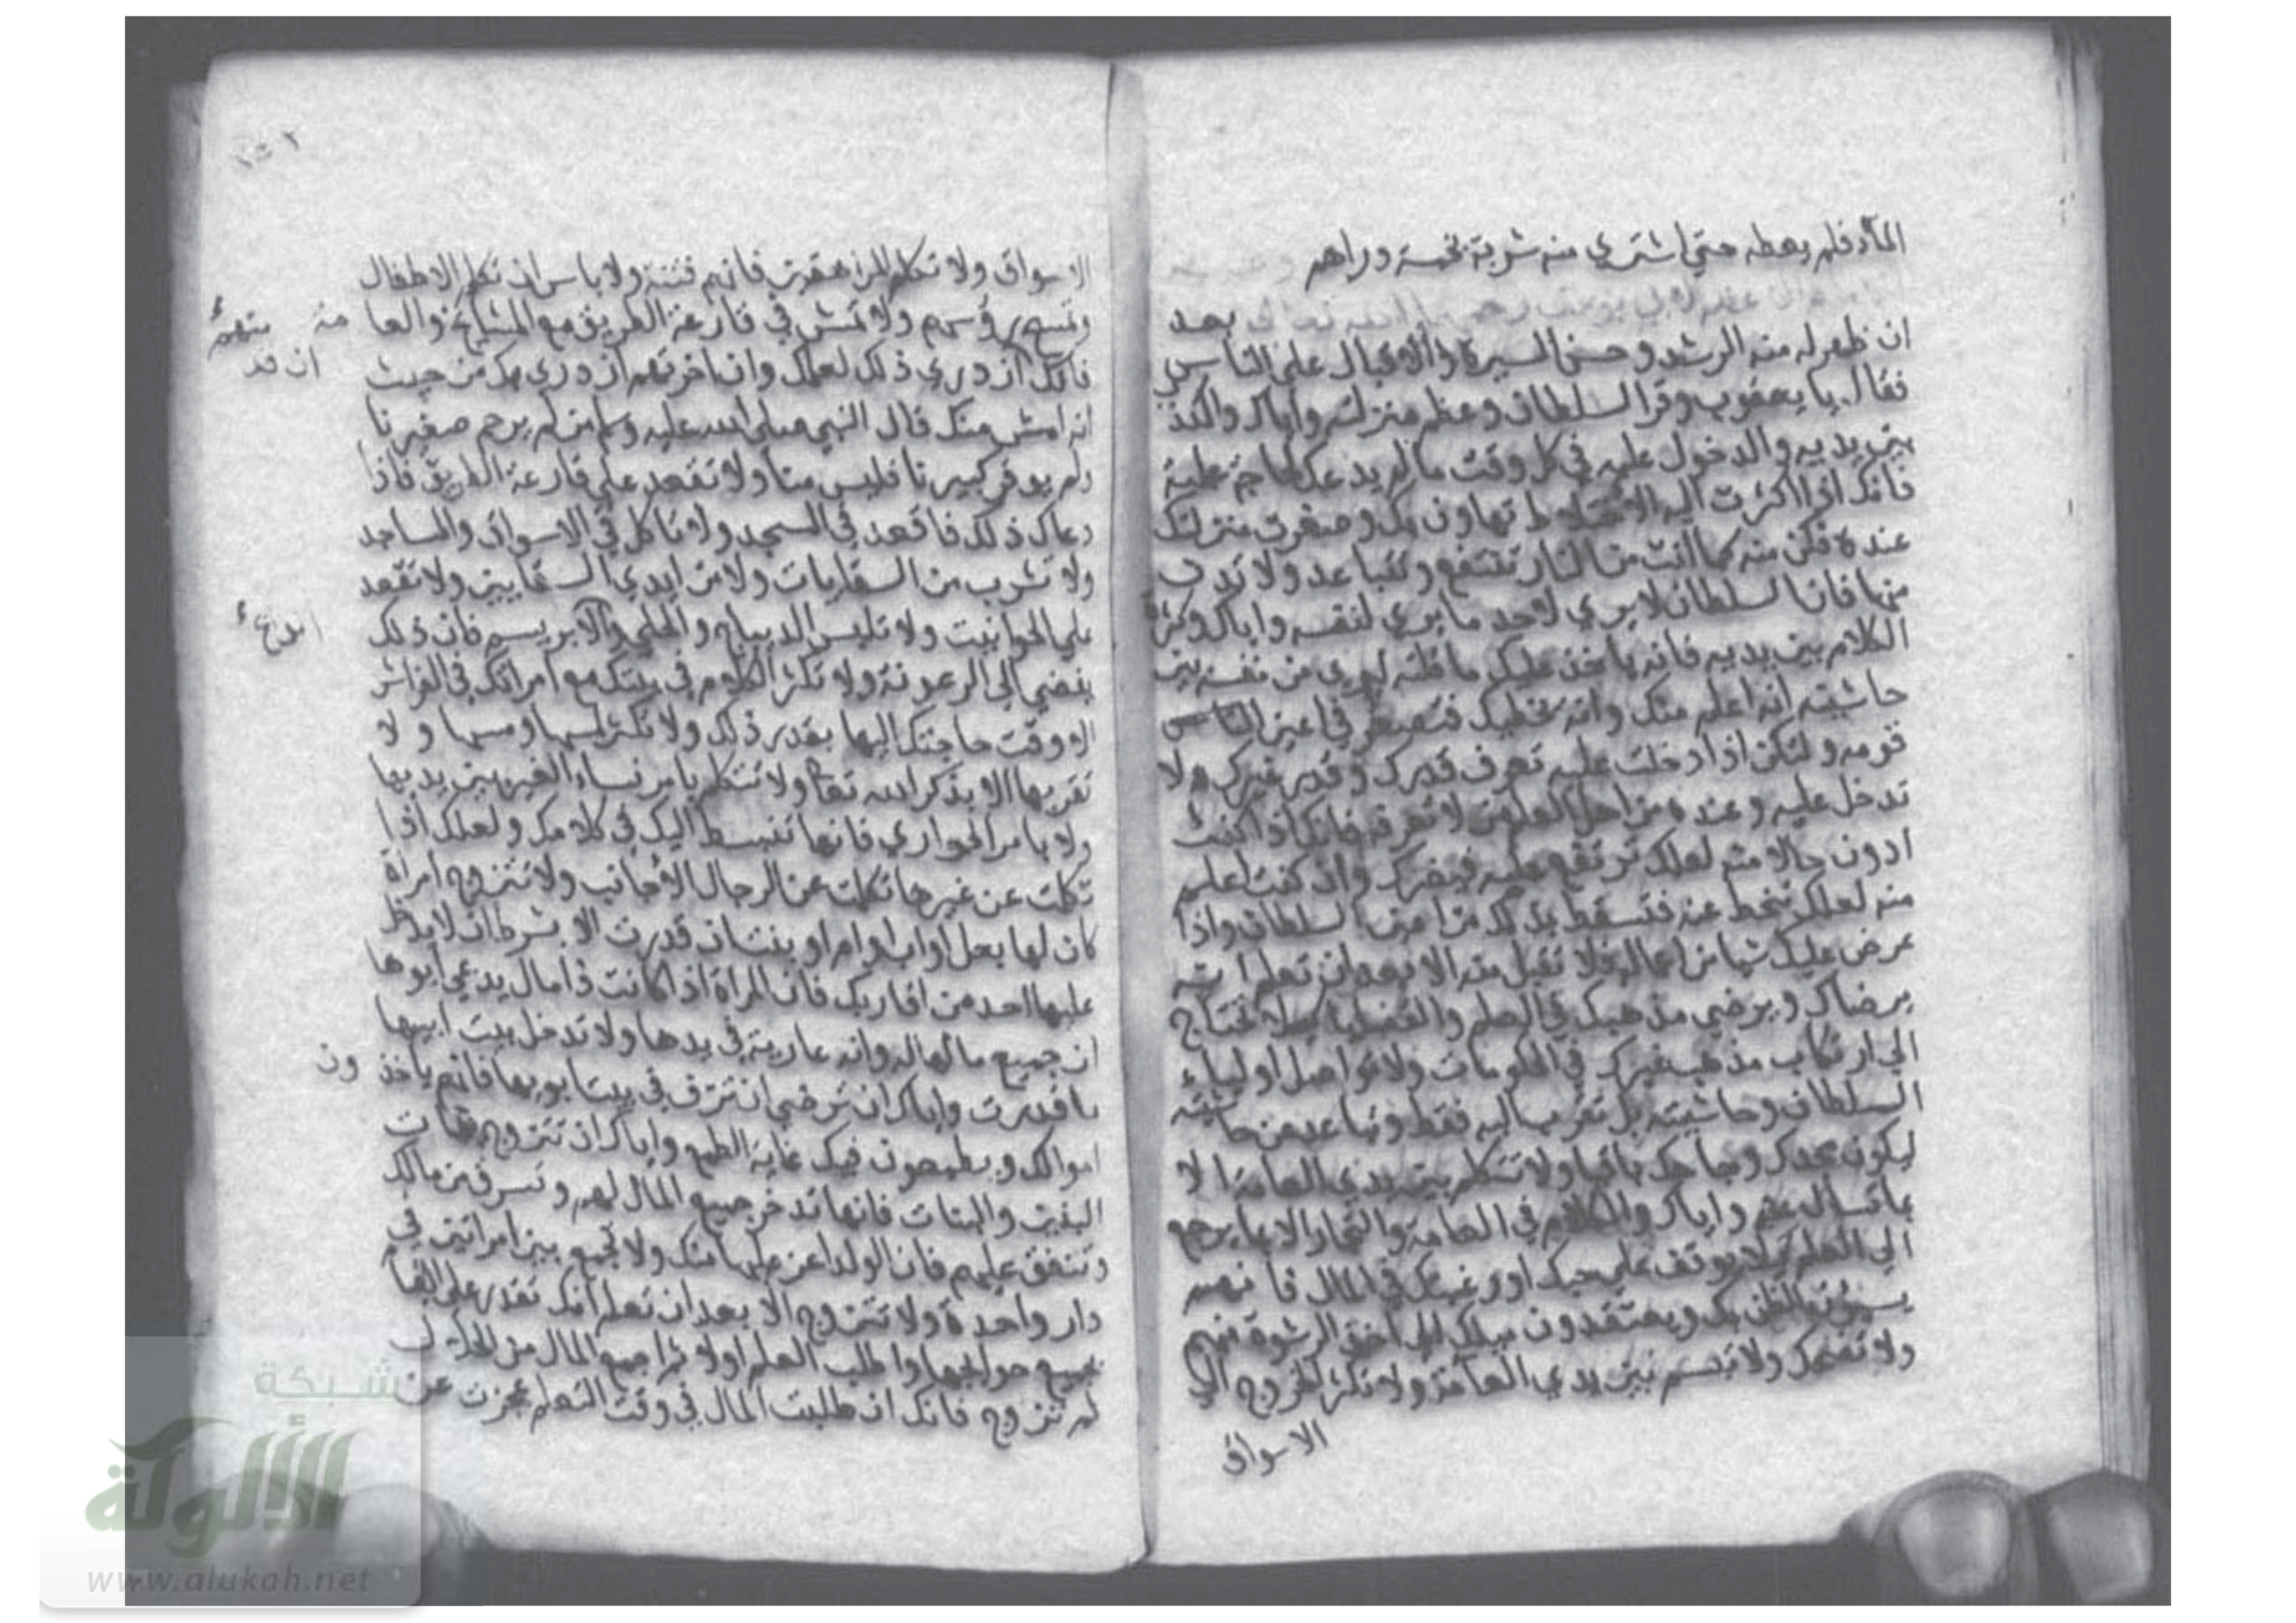 الماء فلم يعطه حتى اشتري منه شربة بخمسة دراهم
لابي يوسف رحمه الله تعالى بعد
ان ظهر له منه الرشد وحسن السيرة والاقبال على الناس
فقال يا يعقوب وقر السلطان وعظم منزلته واياك والكذب
بين يديه والدخول عليه في كل وقت ما لم يدعك لحاجة علمية
فانك اذا اكثرت اليه الاختلاط تهاون بك وصغرت منزلتك
عنده فكن منه كما انت من النار تنتفع وتتباعد ولا تدن
منها فان السلطان لا يري لاحد ما يري لنفسه واياك وكثرة
الكلام بين يديه فانه ياخذ عليك ما قلته ليري من نفسه بين
حاشيته انه اعلم منك وانه يخطيك فتصغر في اعين الناس
قومه ولتكن اذا دخلت عليه تعرف قدرك وقدر غيرك ولا
تدخل عليه وعنده من اهل العلم من لا تعرفه فانك اذا كنت
ادون حالا منه لعلك ترتفع عليه فيضرك وان كنت اعلم
منه لعلك تنحط عنه فتسقط بذلك من اعين السلطان واذا
عرض عليك شيا من اعماله فلا تقبل منه الا بعد ان تعلم انه
يرضاك ويرضي مذهبك في العلم والقضايا كيلا تحتاج
الي ارتكاب مذهب غيرك في الحكومات ولا تواصل اولياء
السلطان وحاشيته بل تقرب اليه فقط وتباعد من حاشيته
ليكون مجدك وجاهك باقيا ولا تتكلم بين يدي العامة الا
بما تسال عنه واياك والكلام في العامة والتجار الا بما يرجع
الي العلم كيلا يوقف علي حبك او رغبتك في المال فانهم
يسيئون الظن بك ويعتقدون ميلك الي اخذ الرشوة منهم
ولا تضحك ولا تبسم بين يدي العامة ولا تكثر الخروج الي
الاسواق
الاسواق ولا تكلم المراهقين فانهم فتنة ولا باس ان تكلم الاطفال
وتمسح رؤسهم ولا تمش في قارعة الطريق مع المشايخ والعا
منه
فانك ان دري ذلك لعلمك وان اخرتهم ازدري بك من حيث
ان قد
انه امش منك قال النبي صلى الله عليه وسلم من لم يرحم صغيرنا
ولم يوقر كبيرنا فليس منا ولا تقعد علي قارعة الطريق فاذا
دعاك ذلك فاقعد في المسجد ولا تاكل في الاسواق والمساجد
ولا تشرب من السقايات ولا من ايدي السقايين ولا تقعد
علي الحوانيت ولا تلبس الديباج والحلي والابريسم فان ذلك
يفضي الي الرعونة ولا تكثر الكلام في بيتك مع امراتك في الفراش
الا وقت حاجتك اليها بقدر ذلك ولا تكثر لمسها ومسها ولا
تقربها الا بذكر الله تعا ولا تتكلم بامر نساء الغير بين يديها
ولا بامر الجواري فانها تنبسط اليك في كلامك ولعلك اذا
تكلمت عن غيرها تكلمت عن الرجال الاجانب ولا تتزوج امراة
كان لها بعل او اب او ام او بنت ان قدرت الا بشرط ان لا يدخل
عليها احد من اقاربك فان المراة اذا كانت ذا مال يدعي ابوها
ان جميع مالها له وانه عارية في يدها ولا تدخل بيت ابيها
ما قدرت واياك ان ترضي ان تزف في بيت ابويها فانهم ياخذ ون
اموالك ويطمعون فيك غاية الطمع واياك ان تتزوج بذات
البنين والبنات فانها تدخر جميع المال لهم وتسرق من مالك
وتنفق عليهم فان الولد اعز عليها منك ولا تجمع بين امراتين في
دار واحدة ولا تتزوج الا بعد ان تعلم انك تقدر على القيام
بجميع حوايجها واطلب العلم اولا ثم اجمع المال من الحلال
ثم تتزوج فانك ان طلبت المال في وقت التعلم عجزت عن
شبكة
الألوكة
www.alukah.net